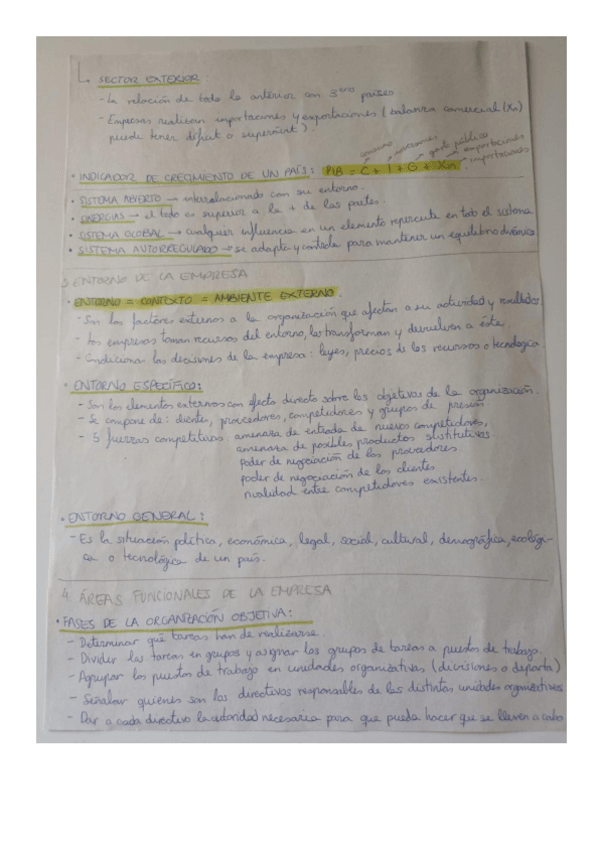 SECTOR EXTERIOR
- La relación de todo lo anterior con 3eros países
- Empresas realizan importaciones y exportaciones (balanza comercial (Xn)
puede tener déficit o superávit).
consumo inversiones gasto público exportaciones
importaciones
• INDICADOR DE CRECIMIENTO DE UN PAÍS: PIB = C + I + G + Xn
• SISTEMA ABIERTO → interrelacionado con su entorno.
• SINERGIAS → el todo es superior a la + de las partes.
• SISTEMA GLOBAL → cualquier influencia en un elemento repercute en todo el sistema
• SISTEMA AUTORREGULADO → se adapta y controla para mantener un equilibrio dinámico
3. ENTORNO DE LA EMPRESA
• ENTORNO = CONTEXTO = AMBIENTE EXTERNO.
- Son los factores externos a la organización que afectan a su actividad y resultados
- Las empresas toman recursos del entorno, los transforman y devuelven a éste.
- Condicionan las decisiones de la empresa: leyes, precios de los recursos o tecnología
• ENTORNO ESPECÍFICO:
- Son los elementos externos con efecto directo sobre los objetivos de la organización.
- Se compone de: clientes, proveedores, competidores y grupos de presión
- 5 fuerzas competitivas: amenaza de entrada de nuevos competidores,
amenaza de posibles productos sustitutivos.
poder de negociación de los proveedores.
poder de negociación de los clientes
rivalidad entre competidores existentes.
• ENTORNO GENERAL:
- Es la situación política, económica, legal, social, cultural, demográfica, ecológi-
ca o tecnológica de un país.
4. ÁREAS FUNCIONALES DE LA EMPRESA
• FASES DE LA ORGANIZACIÓN OBJETIVA:
- Determinar qué tareas han de realizarse.
- Dividir las tareas en grupos y asignar los grupos de tareas a puestos de trabajo.
- Agrupar los puestos de trabajo en unidades organizativas (divisiones o departa)
- Señalar quienes son los directivos responsables de las distintas unidades organizativas
- Dar a cada directivo la autoridad necesaria para que pueda hacer que se lleven a cabo